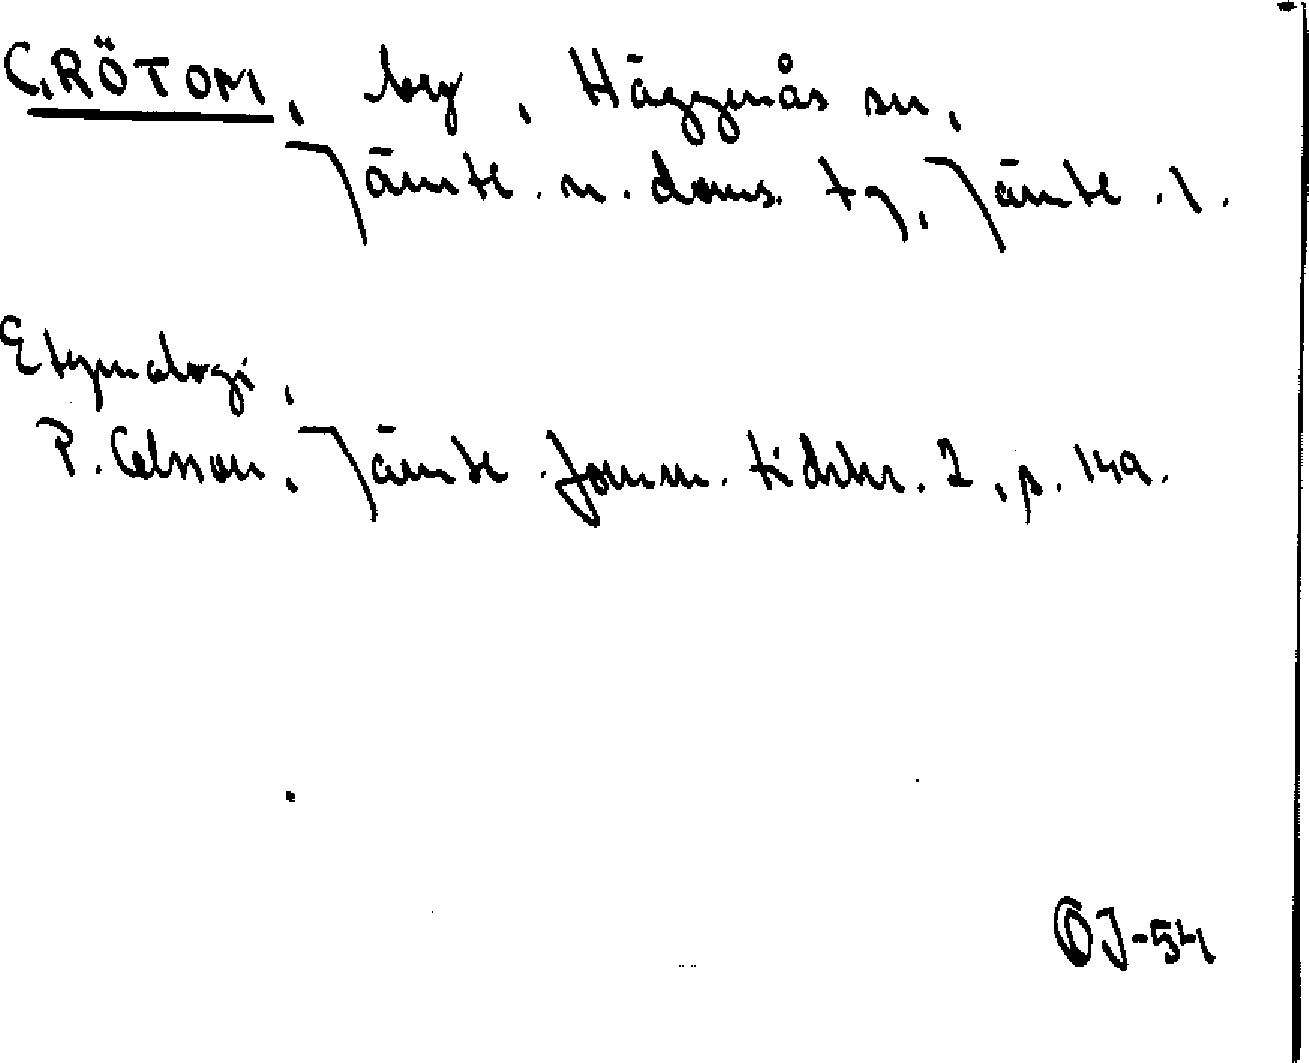 GRÖTOM, by, Häggenås sn,
Jämtl. n. doms. tg, Jämtl. l.
Etymologi,
P. Olsson, Jämtl. fornm. tidskr. 2, p. 149.
OJ-54